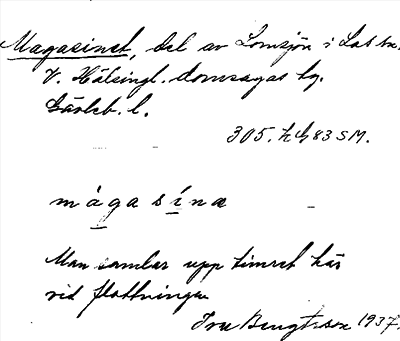 Magasinet, del av Lomsjön i Los sn.
V. Hälsingl. domsagas tg.
Gävleb. l.
305. h 83 SM.
màgasínæ
Man samlar upp timret här
vid flottningen
Ivu Bengtsson 1937.